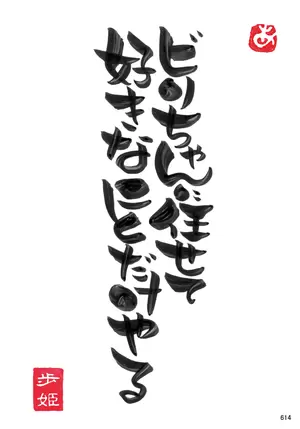 あ
ピンちゃんに任せて
好きなことだけやる
歩姫
614